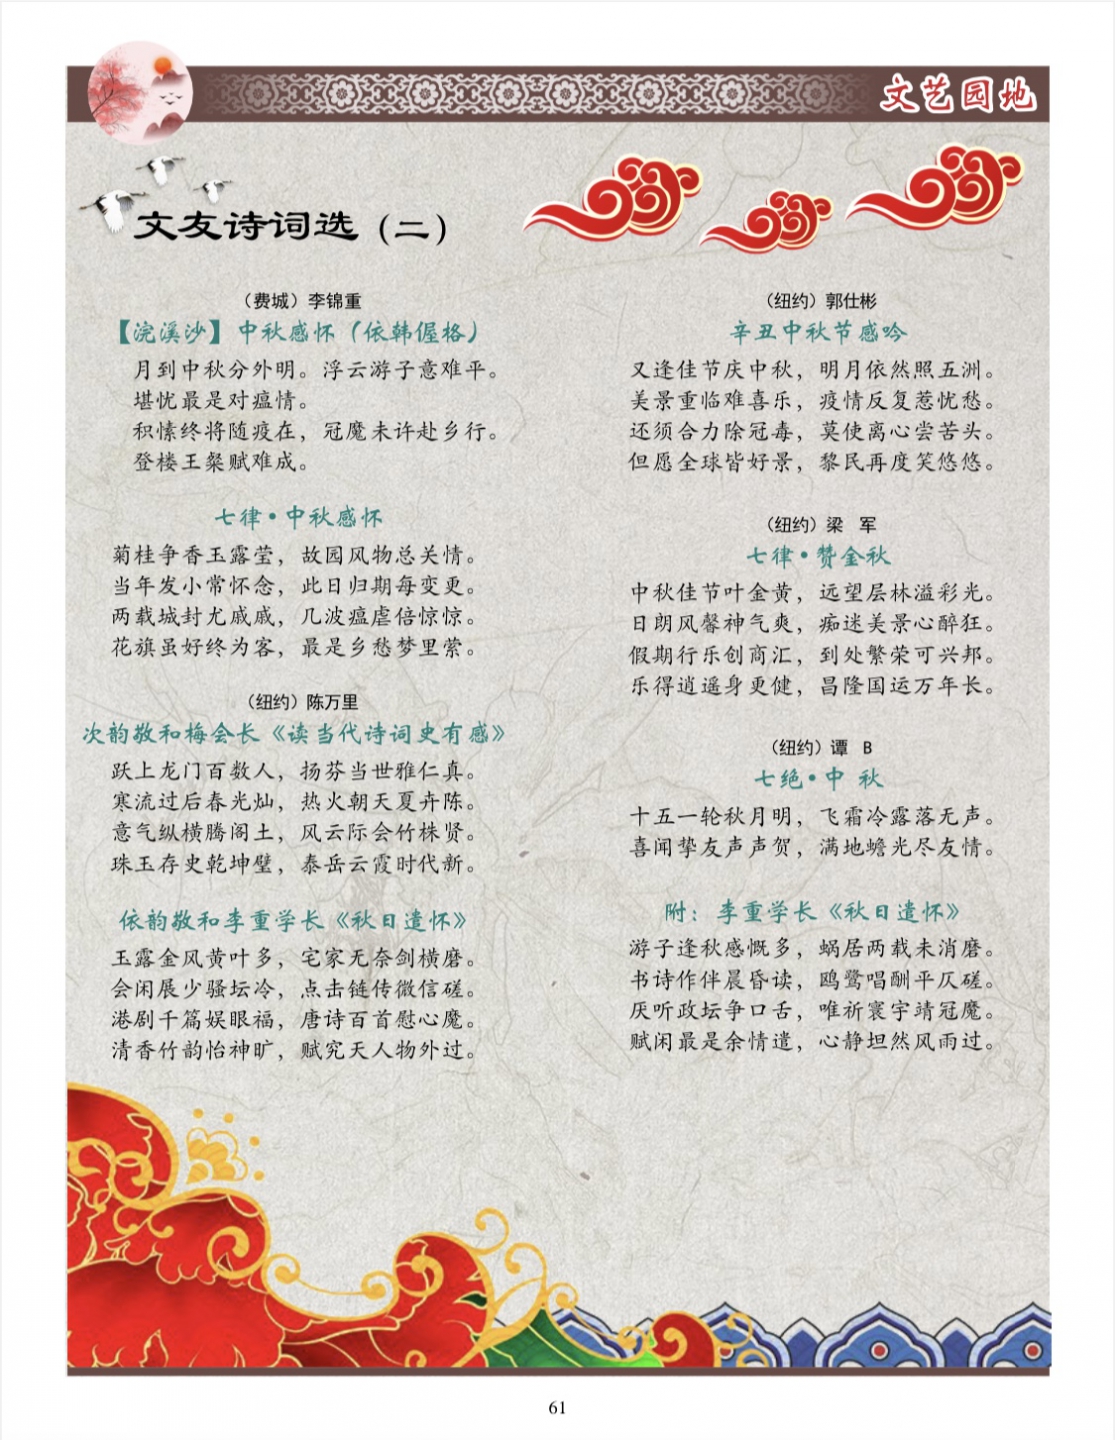 文艺园地
文友诗词选（二）
（费城）李锦重
【浣溪沙】中秋感怀（依韩偓格）
月到中秋分外明。浮云游子意难平。
堪忧最是对瘟情。
积愫终将随疫在，冠魔未许赴乡行。
登楼王粲赋难成。
七律•中秋感怀
菊桂争香玉露莹，故园风物总关情。
当年发小常怀念，此日归期每变更。
两载城封尤戚戚，几波瘟虐倍惊惊。
花旗虽好终为客，最是乡愁梦里萦。
（纽约）陈万里
次韵敬和梅会长《读当代诗词史有感》
跃上龙门百数人，扬芬当世雅仁真。
寒流过后春光灿，热火朝天夏卉陈。
意气纵横腾阁土，风云际会竹株贤。
珠玉存史乾坤璧，泰岳云霞时代新。
依韵敬和李重学长《秋日遣怀》
玉露金风黄叶多，宅家无奈剑横磨。
会闲展少骚坛冷，点击链传微信磋。
港剧千篇娱眼福，唐诗百首慰心魔。
清香竹韵怡神旷，赋究天人物外过。
（纽约）郭仕彬
辛丑中秋节感吟
又逢佳节庆中秋，明月依然照五洲。
美景重临难喜乐，疫情反复惹忧愁。
还须合力除冠毒，莫使离心尝苦头。
但愿全球皆好景，黎民再度笑悠悠。
（纽约）梁 军
七律•赞金秋
中秋佳节叶金黄，远望层林溢彩光。
日朗风馨神气爽，痴迷美景心醉狂。
假期行乐创商汇，到处繁荣可兴邦。
乐得逍遥身更健，昌隆国运万年长。
（纽约）谭 B
七绝•中 秋
十五一轮秋月明，飞霜冷露落无声。
喜闻挚友声声贺，满地蟾光尽友情。
附：李重学长《秋日遣怀》
游子逢秋感慨多，蜗居两载未消磨。
书诗作伴晨昏读，鸥鹭唱酬平仄磋。
厌听政坛争口舌，唯祈寰宇靖冠魔。
赋闲最是余情遣，心静坦然风雨过。
61